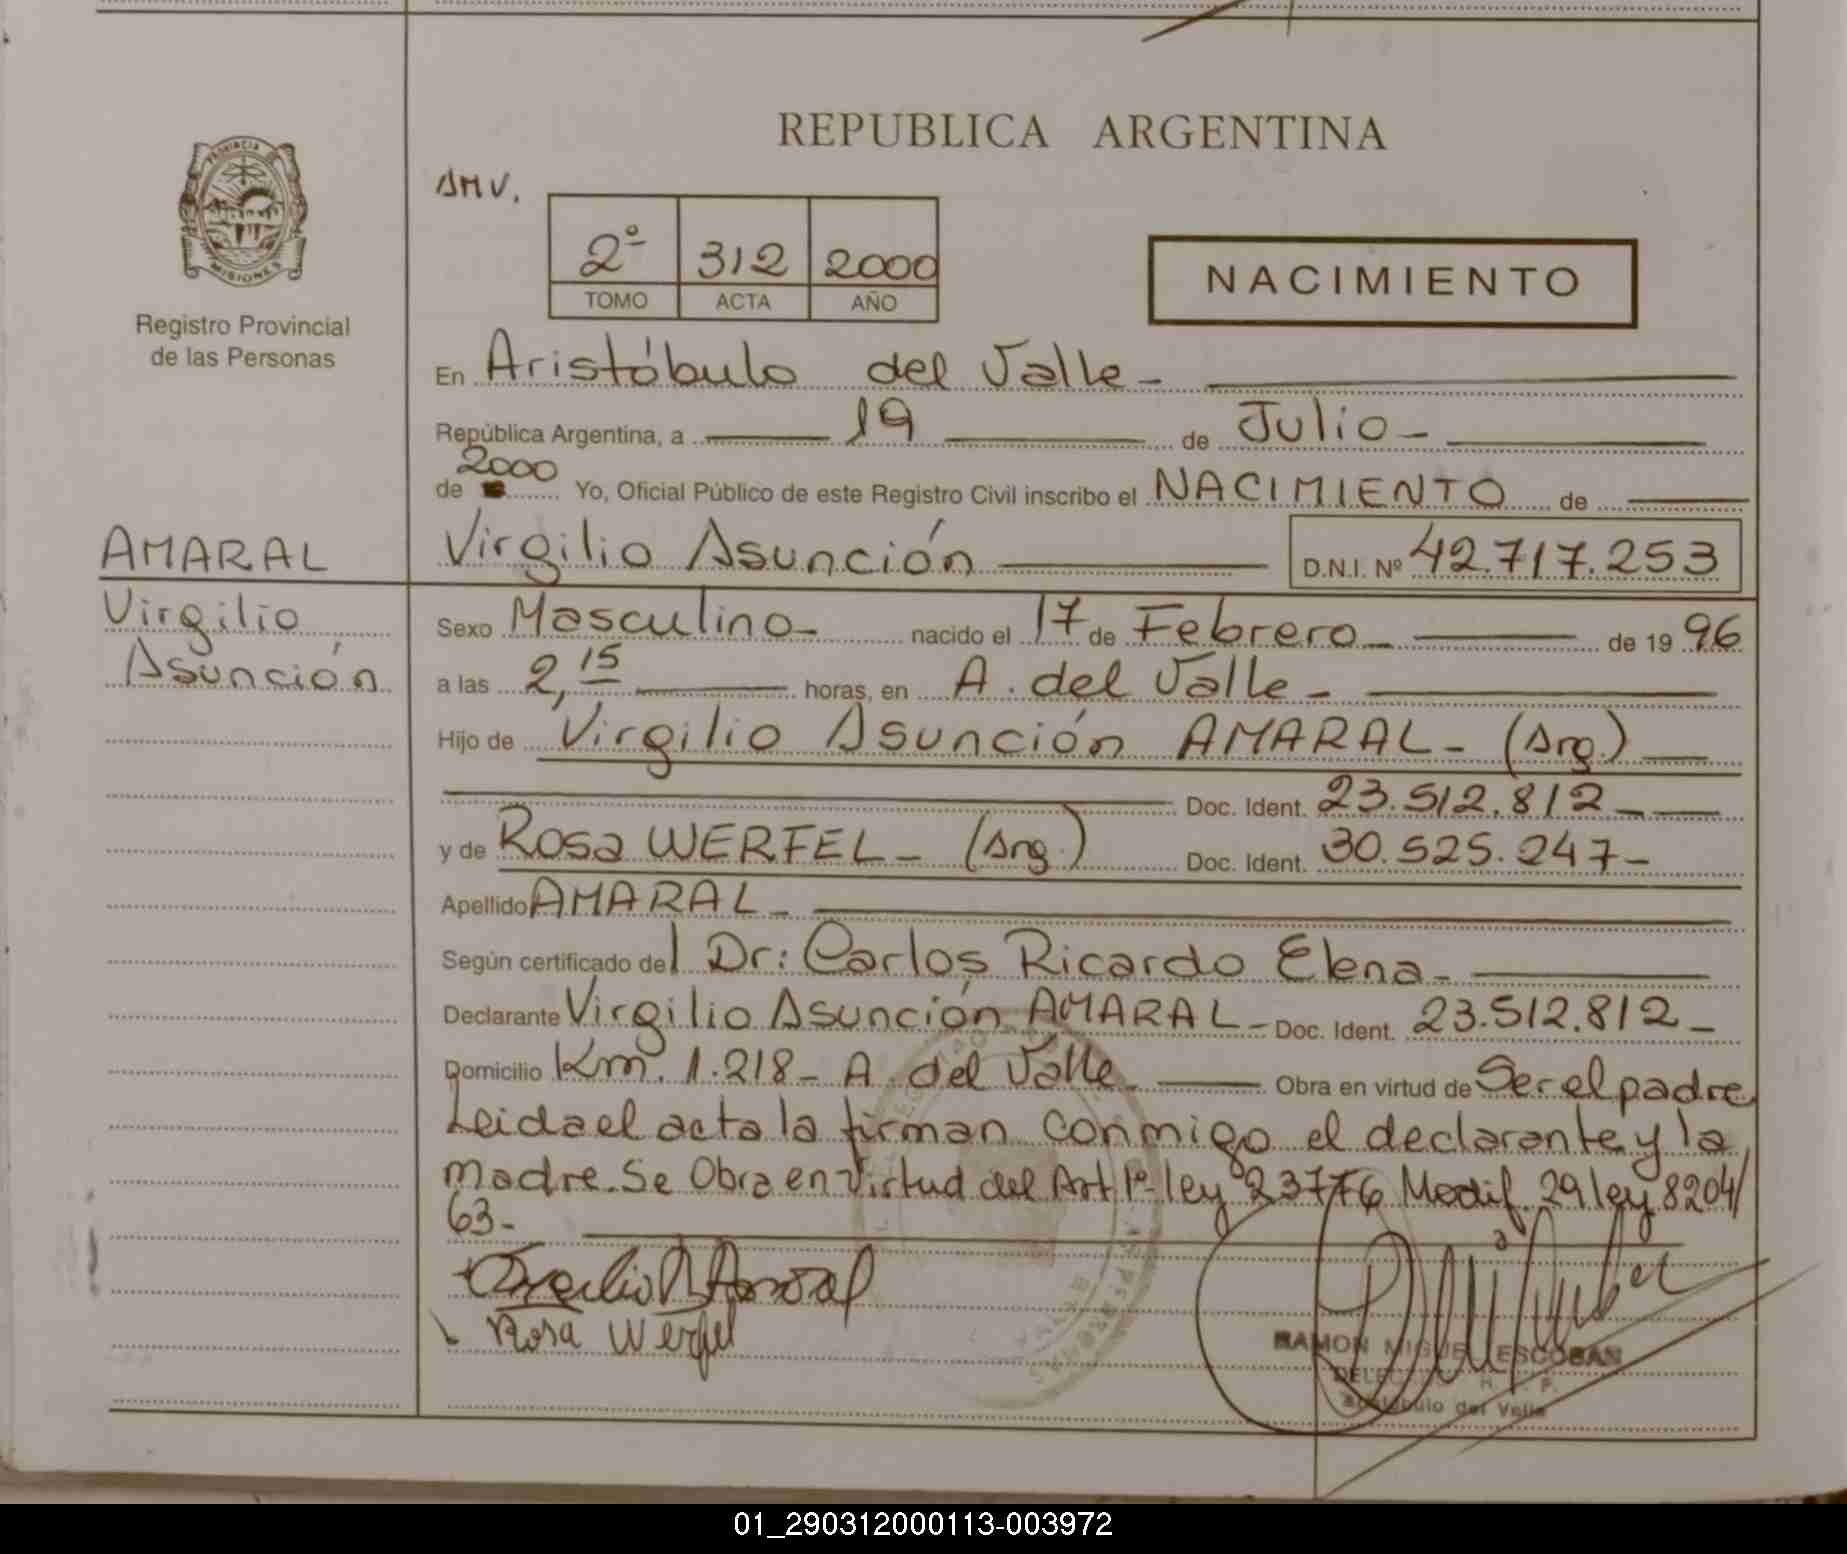 REPUBLICA ARGENTINA
PROVINCIA DE
MISIONES
Registro Provincial
de las Personas
AMV.
2º 312 2000
TOMO ACTA AÑO
NACIMIENTO
En Aristóbulo del Valle -
República Argentina, a 19 de Julio -
2000
de Yo, Oficial Público de este Registro Civil inscribo el NACIMIENTO de
AMARAL
Virgilio
Asunción
Virgilio Asunción D.N.I. Nº 42.717.253
Sexo Masculino - nacido el 17 de Febrero - de 19 96
a las 2,15 horas, en A. del Valle -
Hijo de Virgilio Asunción AMARAL - (Arg.)
Doc. Ident. 23.512.812 -
y de Rosa WERFEL - (Arg.) Doc. Ident. 30.525.247 -
Apellido AMARAL -
Según certificado del Dr: Carlos Ricardo Elena -
Declarante Virgilio Asunción AMARAL - Doc. Ident. 23.512.812 -
Domicilio Km. 1.218 - A. del Valle - Obra en virtud de Ser el padre
Leida el acta la firman conmigo el declarante y la
madre. Se Obra en Virtud del Art 1º ley 23776 Modif. 29 ley 8204/
63 -
Rosa Werfel
RAMON MIGUEL ESCOBAR
Aristóbulo del Valle
01_290312000113-003972